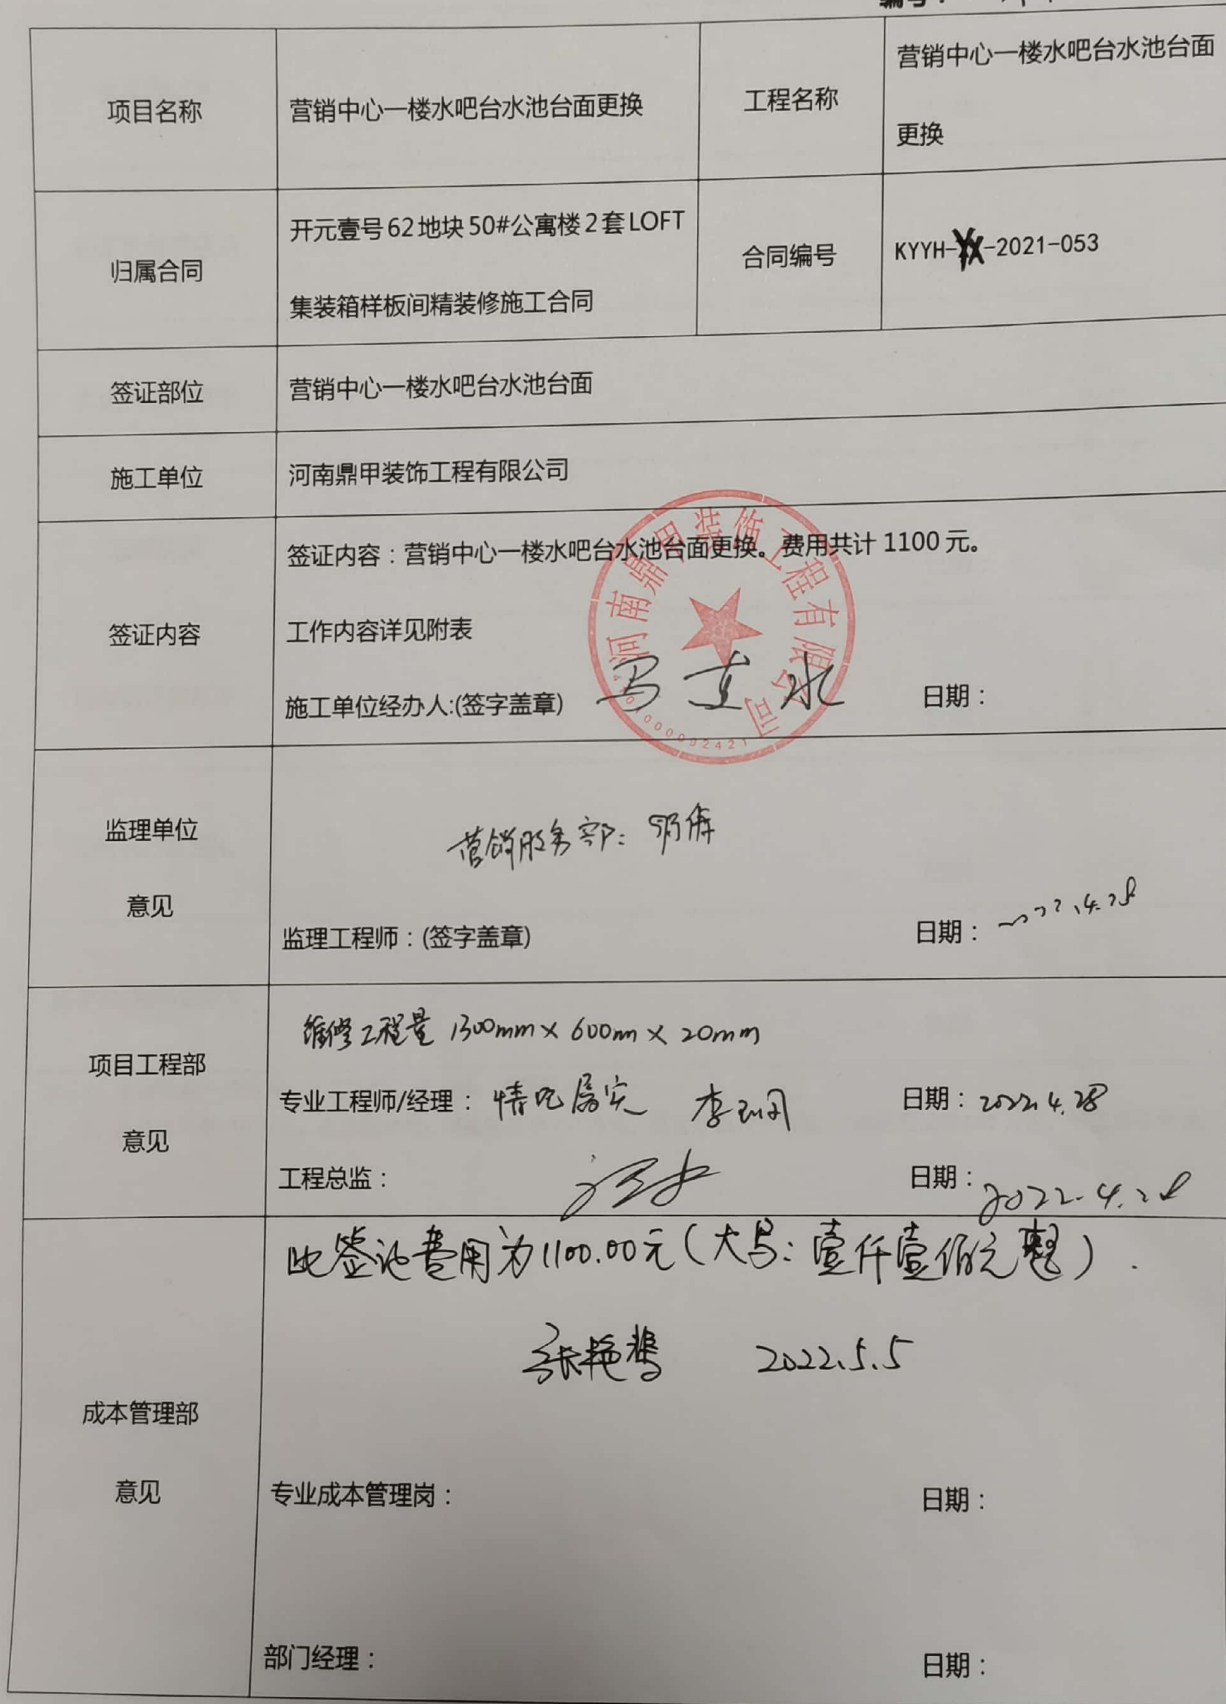 编号：
项目名称
营销中心一楼水吧台水池台面更换
工程名称
营销中心一楼水吧台水池台面
更换
归属合同
开元壹号62地块50#公寓楼2套LOFT
集装箱样板间精装修施工合同
合同编号
KYYH-YX-2021-053
签证部位
营销中心一楼水吧台水池台面
施工单位
河南鼎甲装饰工程有限公司
签证内容
签证内容：营销中心一楼水吧台水池台面更换。费用共计1100元。
工作内容详见附表
施工单位经办人:(签字盖章)
日期：
河南鼎甲装饰工程有限公司
监理单位
意见
营销服务部：
监理工程师：(签字盖章)
日期：2022.4.28
项目工程部
意见
维修工程量 1300mm×600mm×20mm
专业工程师/经理：情况属实
日期：2022.4.28
工程总监：
日期：2022.4.28
成本管理部
意见
此签证费用为1100.00元(大写：壹仟壹佰元整).
张艳
2022.5.5
专业成本管理岗：
日期：
部门经理：
日期：